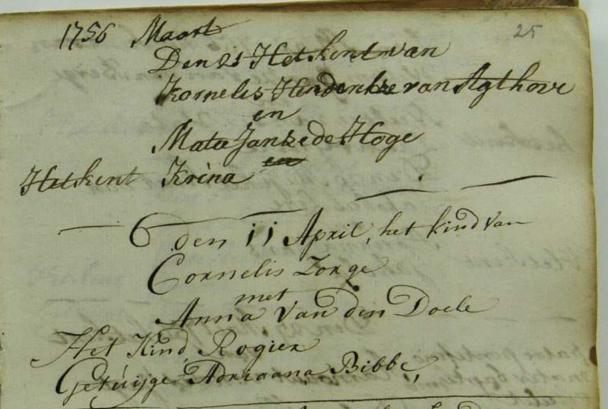 1756 Maart 25
Den 21 Het kent van
Kornelis Hendrikse van Agthove
en
Mate Janse de Hoge
en
Het kent Krina
6 den 11 April, het kind van
Cornelis Zorge
met
Anna van den Doele
Het Kind Rogier
Getuijge Adriaana Bibbe,